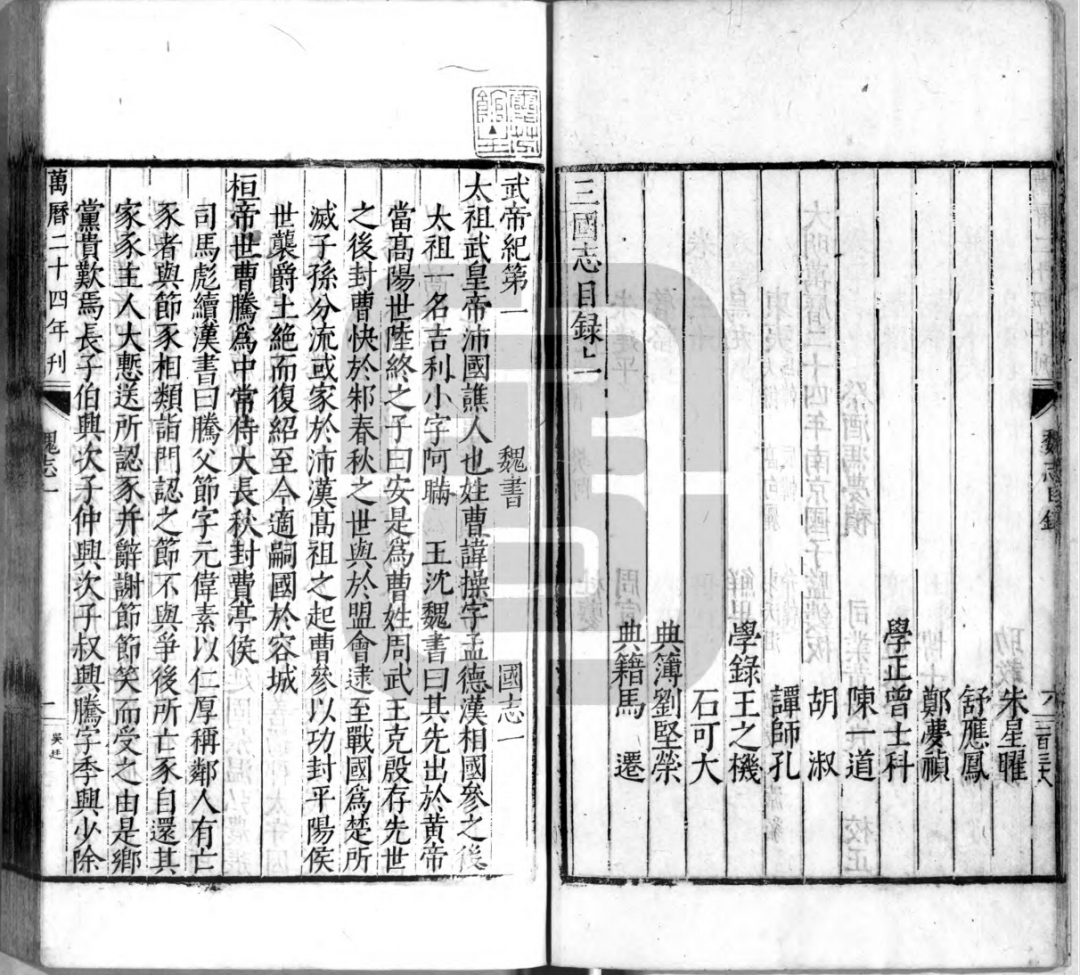 魏志目錄
六
二百三大
朱星曜
舒應鳳
鄭夢禎
學正曾士科
陳一道
胡淑
譚師孔
學錄王之機
石可大
典簿劉堅榮
典籍馬遷
三國志目録
武帝紀第一 魏書 國志一
太祖武皇帝沛國譙人也姓曹諱操字孟德漢相國參之後
太祖一名吉利小字阿瞞 王沈魏書曰其先出於黃帝
當髙陽世陸終之子曰安是爲曹姓周武王克殷存先世
之後封曹俠於邾春秋之世與於盟會逮至戰國爲楚所
滅子孫分流或家於沛漢髙祖之起曹參以功封平陽侯
世襲爵土絶而復紹至今適嗣國於容城
桓帝世曹騰爲中常侍大長秋封費亭侯
司馬彪續漢書曰騰父節字元偉素以仁厚稱鄰人有亡
豕者與節豕相類詣門認之節不與爭後所亡豕自還其
家豕主人大慙送所認豕并辭謝節節笑而受之由是鄉
黨貴歎焉長子伯興次子仲興次子叔興騰字季興少除
萬曆二十四年刊
魏志一
一